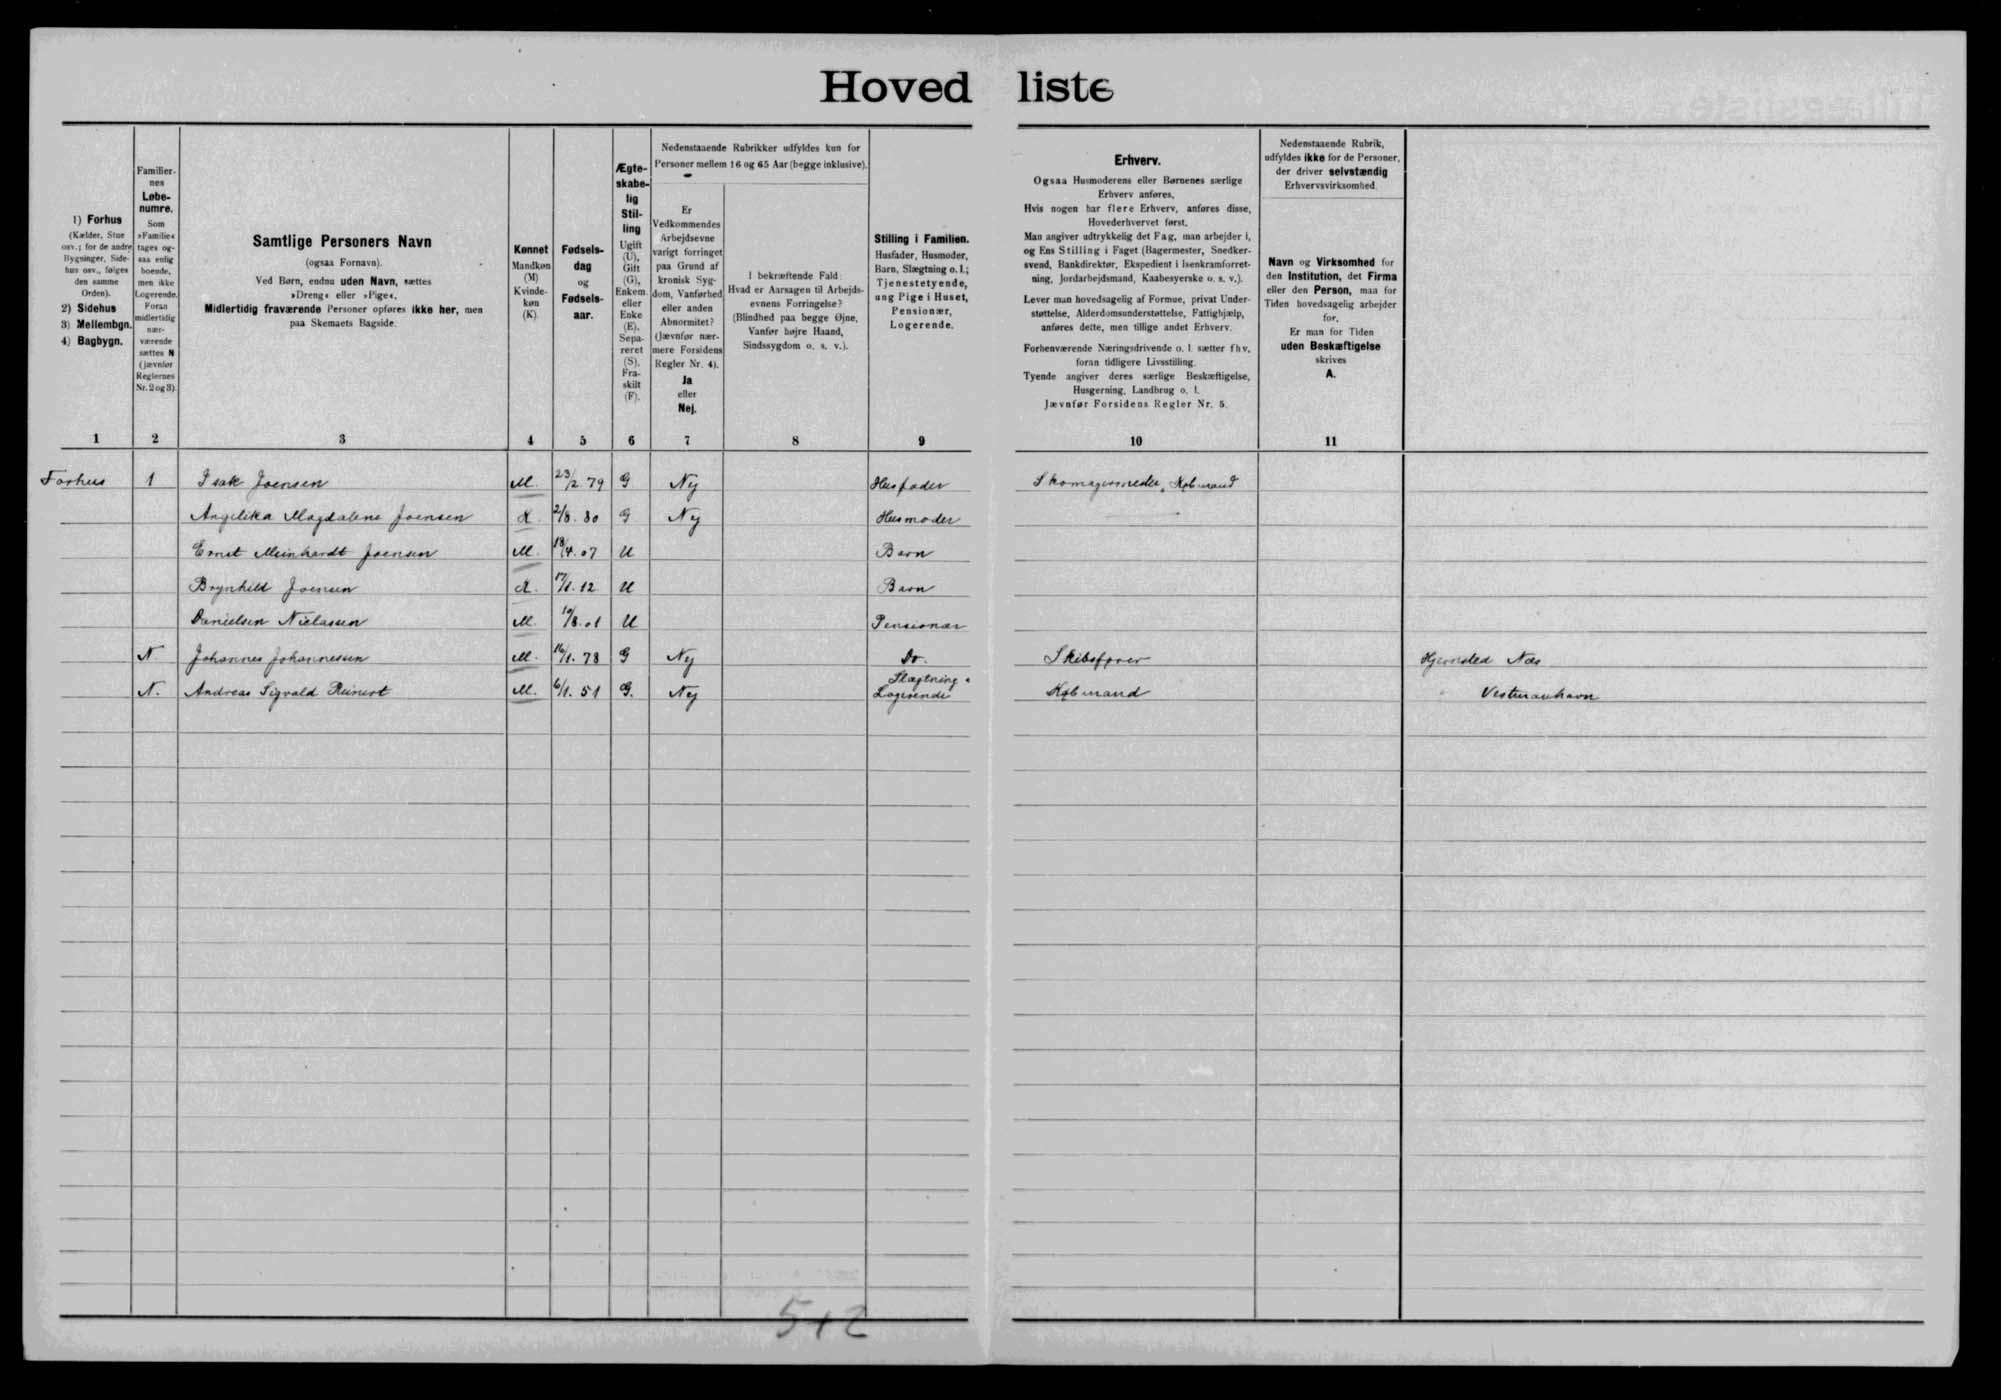 Hovedliste
1) Forhus
(Kælder, Stue
osv.; for de andre
Bygninger, Side-
hus osv., følges
den samme
Orden).
2) Sidehus
3) Mellembgn.
4) Bagbygn.
Familier-
nes
Løbe-
numre.
Som
»Familie«
tages og-
saa enlig
boende,
men ikke
Logerende.
Foran
midlertidig
nær-
værende
sættes N
(jævnfør
Reglernes
Nr. 2 og 3).
Samtlige Personers Navn
(ogsaa Fornavn).
Ved Børn, endnu uden Navn, sættes
»Dreng« eller »Pige«.
Midlertidig fraværende Personer opføres ikke her, men
paa Skemaets Bagside.
Kønnet
Mandkøn
(M)
Kvinde-
køn
(K).
Fødsels-
dag
og
Fødsels-
aar.
Ægte-
skabe-
lig
Stil-
ling
Ugift
(U),
Gift
(G),
Enkem.
eller
Enke
(E).
Sepa-
reret
(S).
Fra-
skilt
(F).
Nedenstaaende Rubrikker udfyldes kun for
Personer mellem 16 og 65 Aar (begge inklusive).
Er
Vedkommendes
Arbejdsevne
varigt forringet
paa Grund af
kronisk Syg-
dom, Vanførhed
eller anden
Abnormitet?
(Jævnfør nær-
mere Forsidens
Regler Nr. 4).
Ja
eller
Nej.
I bekræftende Fald:
Hvad er Aarsagen til Arbejds-
evnens Forringelse?
(Blindhed paa begge Øjne,
Vanfør højre Haand,
Sindssygdom o. s. v.).
Stilling i Familien.
Husfader, Husmoder,
Barn, Slægtning o. l.;
Tjenestetyende,
ung Pige i Huset,
Pensionær,
Logerende.
Erhverv.
Ogsaa Husmoderens eller Børnenes særlige
Erhverv anføres.
Hvis nogen har flere Erhverv, anføres disse,
Hovederhvervet først.
Man angiver udtrykkelig det Fag, man arbejder i,
og Ens Stilling i Faget (Bagermester, Snedker-
svend, Bankdirektør, Ekspedient i Isenkramforret-
ning, Jordarbejdsmand, Kaabesyerske o. s. v.).
Lever man hovedsagelig af Formue, privat Under-
støttelse, Alderdomsunderstøttelse, Fattighjælp,
anføres dette, men tillige andet Erhverv.
Forhenværende Næringsdrivende o. l. sætter fhv.
foran tidligere Livsstilling.
Tyende angiver deres særlige Beskæftigelse,
Husgerning, Landbrug o. l.
Jævnfør Forsidens Regler Nr. 5.
Nedenstaaende Rubrik,
udfyldes ikke for de Personer,
der driver selvstændig
Erhvervsvirksomhed.
Navn og Virksomhed for
den Institution, det Firma
eller den Person, man for
Tiden hovedsagelig arbejder
for.
Er man for Tiden
uden Beskæftigelse
skrives
A.
1 2 3 4 5 6 7 8 9 10 11
Forhus 1 Isak Joensen M. 23/2.79 G Nej Husfader Skomagermester, Købmand
Angelika Magdalene Joensen K. 2/8.80 G Nej Husmoder
Ernst Meinhardt Joensen M. 18/4.07 U Barn
Brynhild Joensen K. 17/1.12 U Barn
Danielsen Niclassen M. 10/8.01 U Pensionær
N. Johannes Johannessen M. 16/1.78 G Nej Do. Skibsfører Hjemsted Næs
N. Andreas Sigvald Reinert M. 6/1.51 G. Nej Slægtning Logerende Købmand Vestmanhavn
5+2